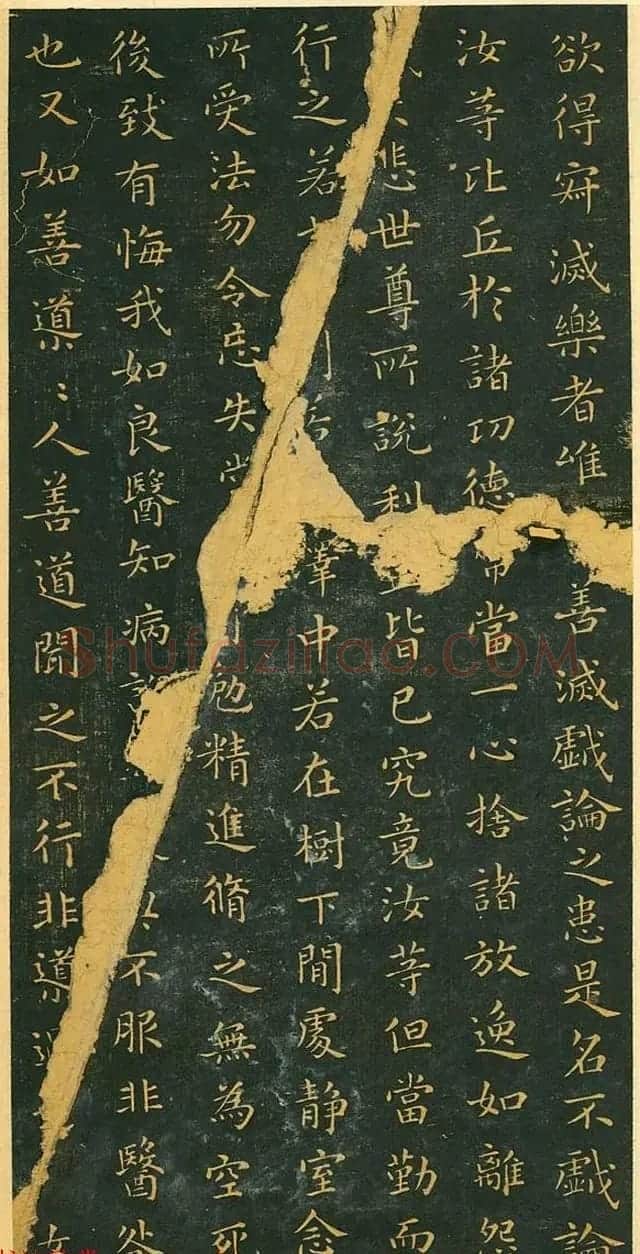 欲得寂滅樂者唯善滅戲論之患是名不戲論
汝等比丘於諸功德常當一心捨諸放逸如離怨
悲世尊所說利皆已究竟汝等但當勤而
行之若中若在樹下閒處靜室念
所受法勿令忘失勉精進脩之無為空死
後致有悔我如良醫知病不服非醫咎
也又如善導〻人善道聞之不行非導過
Shufaziliao.COM